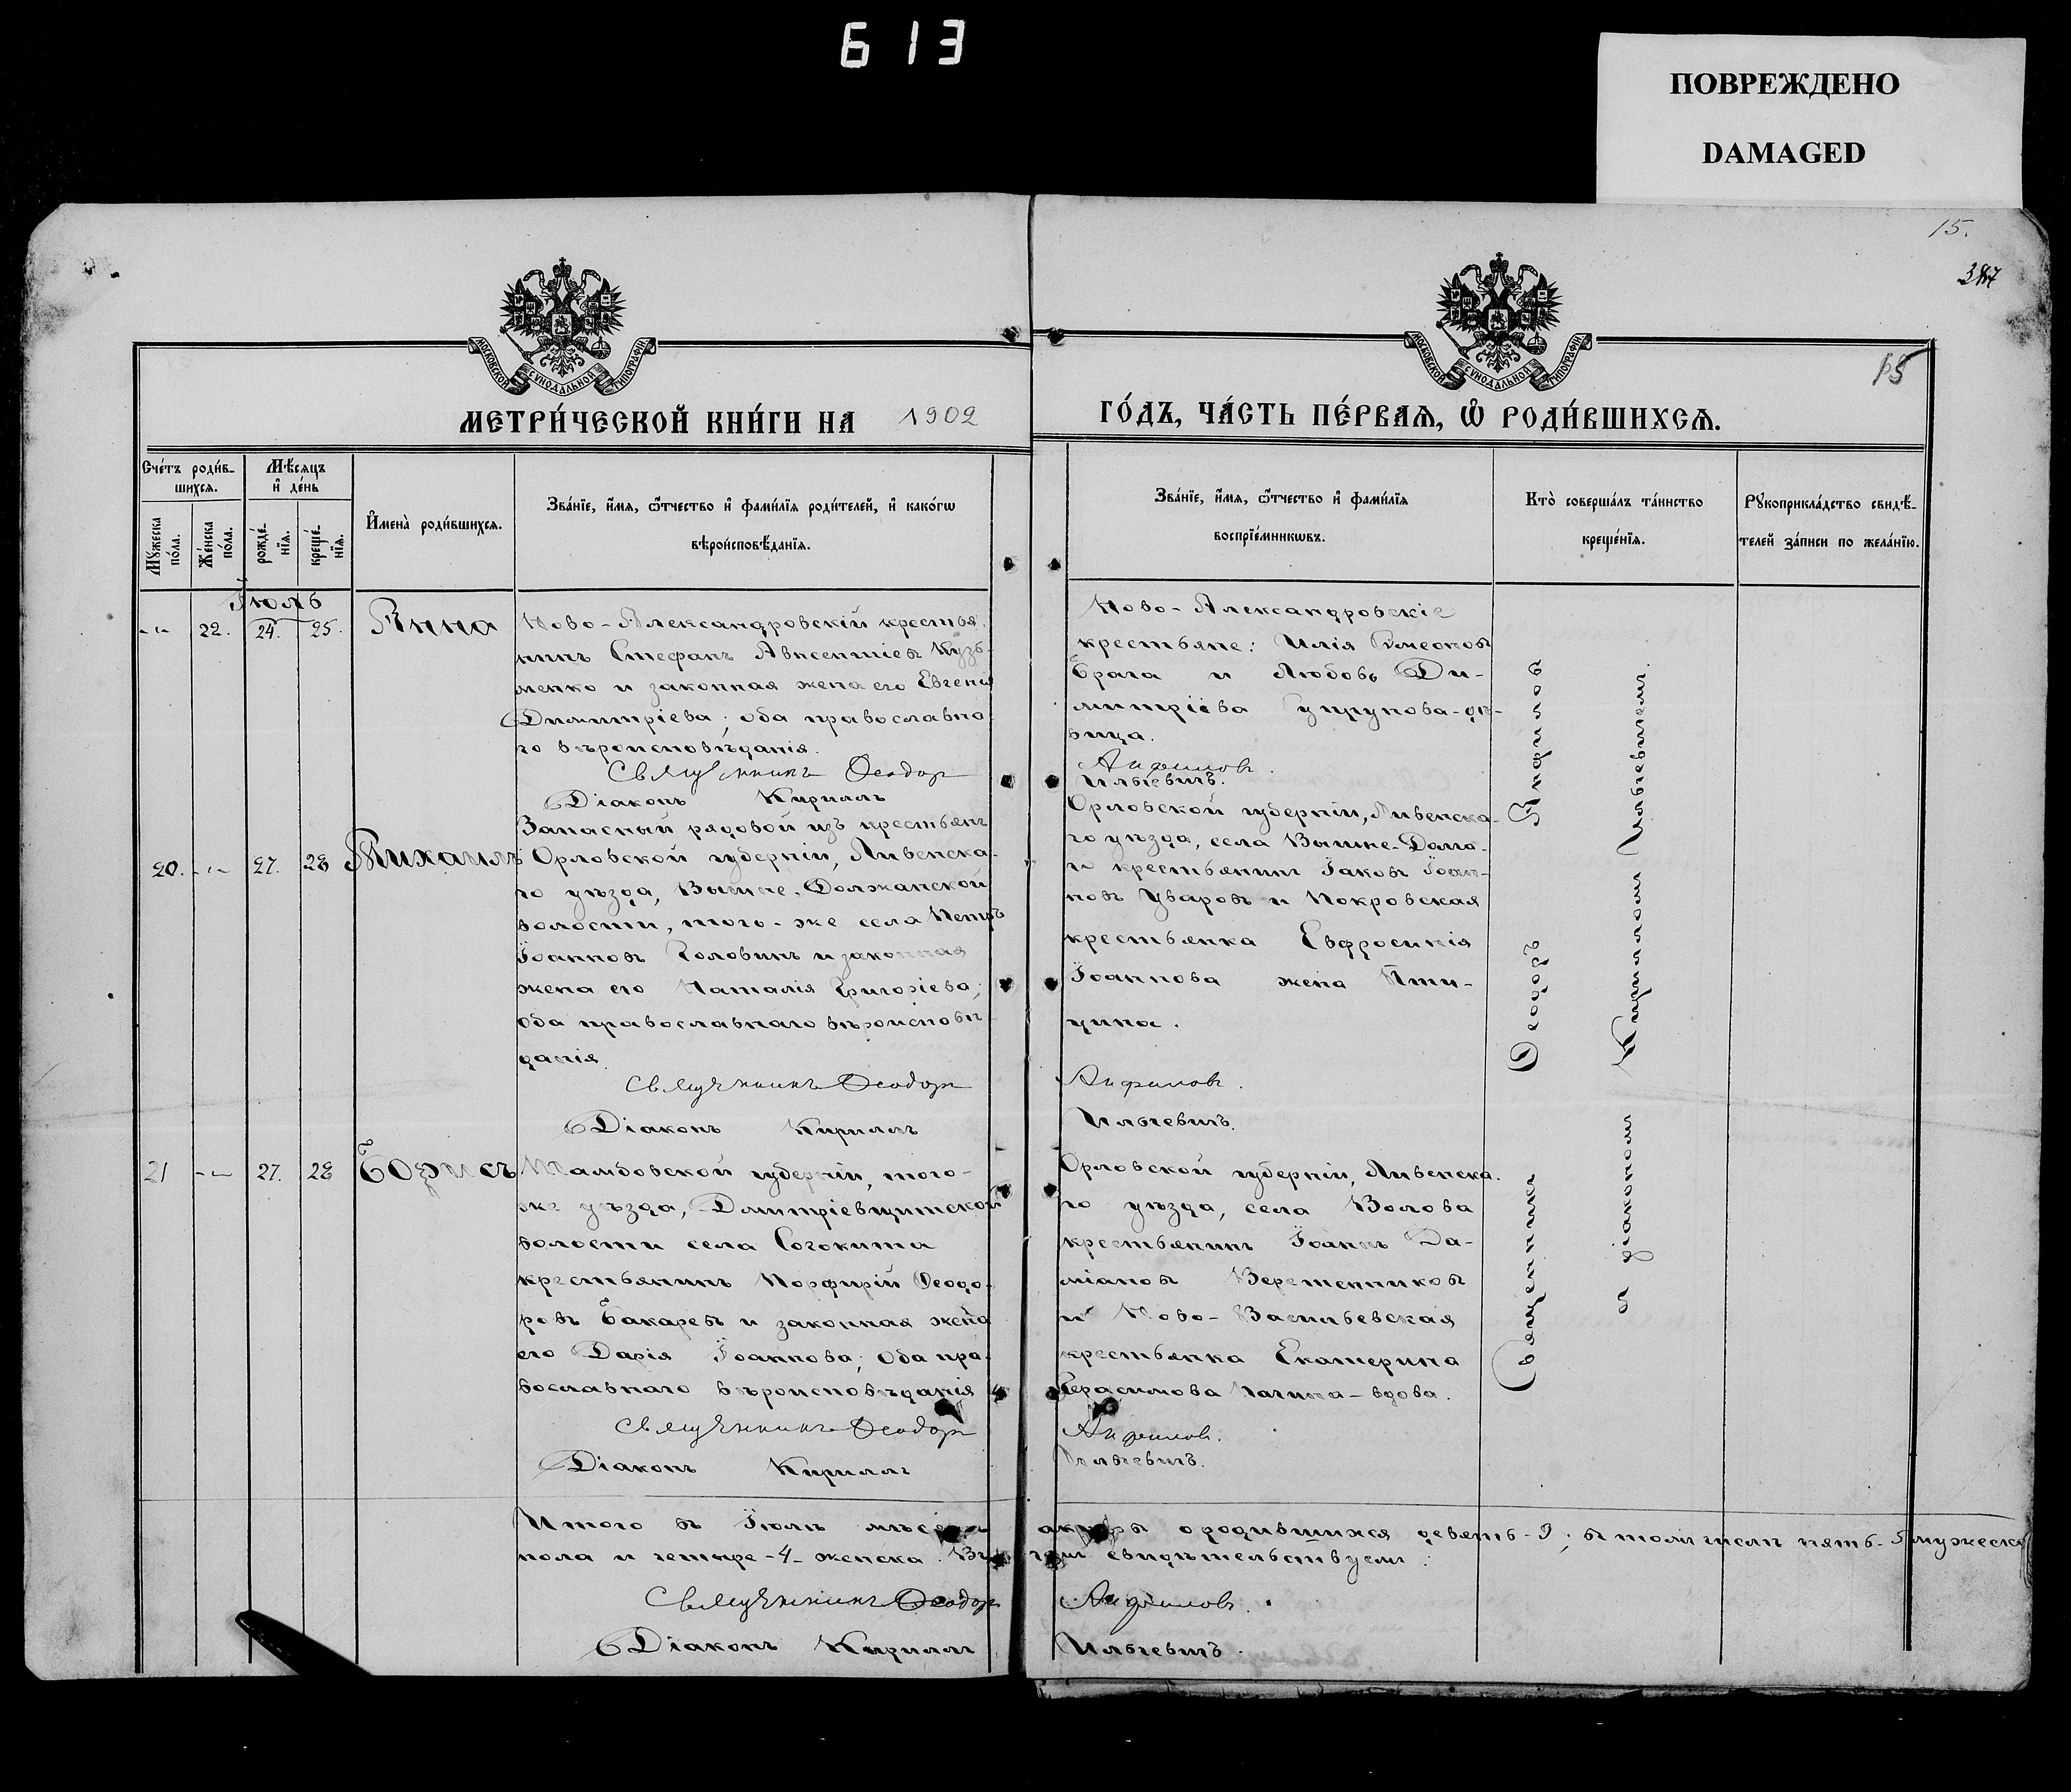 613
ПОВРЕЖДЕНО
DAMAGED
15.
387
15
МОСКОВСКОЙ СѴНОДАЛЬНОЙ ТИПОГРАФІИ
МОСКОВСКОЙ СѴНОДАЛЬНОЙ ТИПОГРАФІИ
МЕТРИ́ЧЕСКОЙ КНИ́ГИ НА 1902 ГО́ДЪ, ЧА́СТЬ ПЕ́РВАЯ, Ѡ РОДИ́ВШИХСЯ.
Сче́тъ роди́в-
шихся.
Мѣ́сяцъ
и де́нь
Мꙋжеска
по́ла.
Же́нска
по́ла.
рожде́-
нїя.
креще́-
нїя.
Имена̀ роди́вшихся.
Зва́нїе, и́мя, ѻ́тчество и фами́лїя роди́телей, и како́гѡ
вѣроисповѣ́данїя.
Зва́нїе, и́мя, ѻ́тчество и фами́лїя
воспрїе́мникѡвъ.
Кто̀ соверша́лъ та́инство
креще́нїя.
Рꙋкоприкла́дство свидѣ́-
телей за́писи по жела́нїю.
Іюль
-"- 22. 24. 25. Анна
Ново-Александровскій крестья-
нинъ Стефанъ Авксентіевъ Кузь-
менко и законная жена его Евгенія
Димитріева; оба православна-
го вѣроисповѣданія.
Священникъ Ѳеодоръ
Діаконъ Кириллъ
Ново-Александровскіе
крестьяне: Илія Симеоновъ
Брага и Любовь Ди-
митріева Супрунова-дѣ-
вица.
Анфиловъ.
Ильіевичъ.
20. -"- 27. 28 Михаилъ
Запасный рядовой изъ крестьянъ
Орловской губерніи, Ливенска-
го уѣзда, Вышне-Должанской
волости, того-же села Петръ
Іоанновъ Головинъ и законная
жена его Наталія Григоріева;
оба православнаго вѣроисповѣ-
данія.
Священникъ Ѳеодоръ
Діаконъ Кириллъ
Орловской губерніи, Ливенска-
го уѣзда, села Вышне-Долга-
го крестьянинъ Іаковъ Іоан-
новъ Уваровъ и Покровская
крестьянка Евфросинія
Іоаннова жена Пти-
цина.
Анфиловъ.
Ильіевичъ.
21 -"- 27. 28 Борисъ
Тамбовской губерніи, того-
же уѣзда, Дмитріевщинской
волости села
крестьянинъ Порфирій Ѳеодо-
ровъ Бакаревъ и законная жена
его Дарія Іоаннова; оба пра-
вославнаго вѣроисповѣданія
Священникъ Ѳеодоръ
Діаконъ Кириллъ
Орловской губерніи, Ливенска-
го уѣзда, села Волова
крестьянинъ Іоаннъ Да-
міановъ Веретенниковъ
и Ново-Васильевская
крестьянка Екатерина
Герасимова вдова.
Анфиловъ.
Ильіевичъ.
Священникъ Ѳеодоръ Анфиловъ
съ діакономъ Кирилломъ Ильіевичемъ.
Итого въ Іюлѣ мѣсяцѣ актовъ о родившихся девять-9; въ томъ числѣ пять-5 мужеска
пола и четыре-4-женска. Въ чемъ свидѣтельствуемъ:
Священникъ Ѳеодоръ Анфиловъ.
Діаконъ Кириллъ Ильіевичъ.